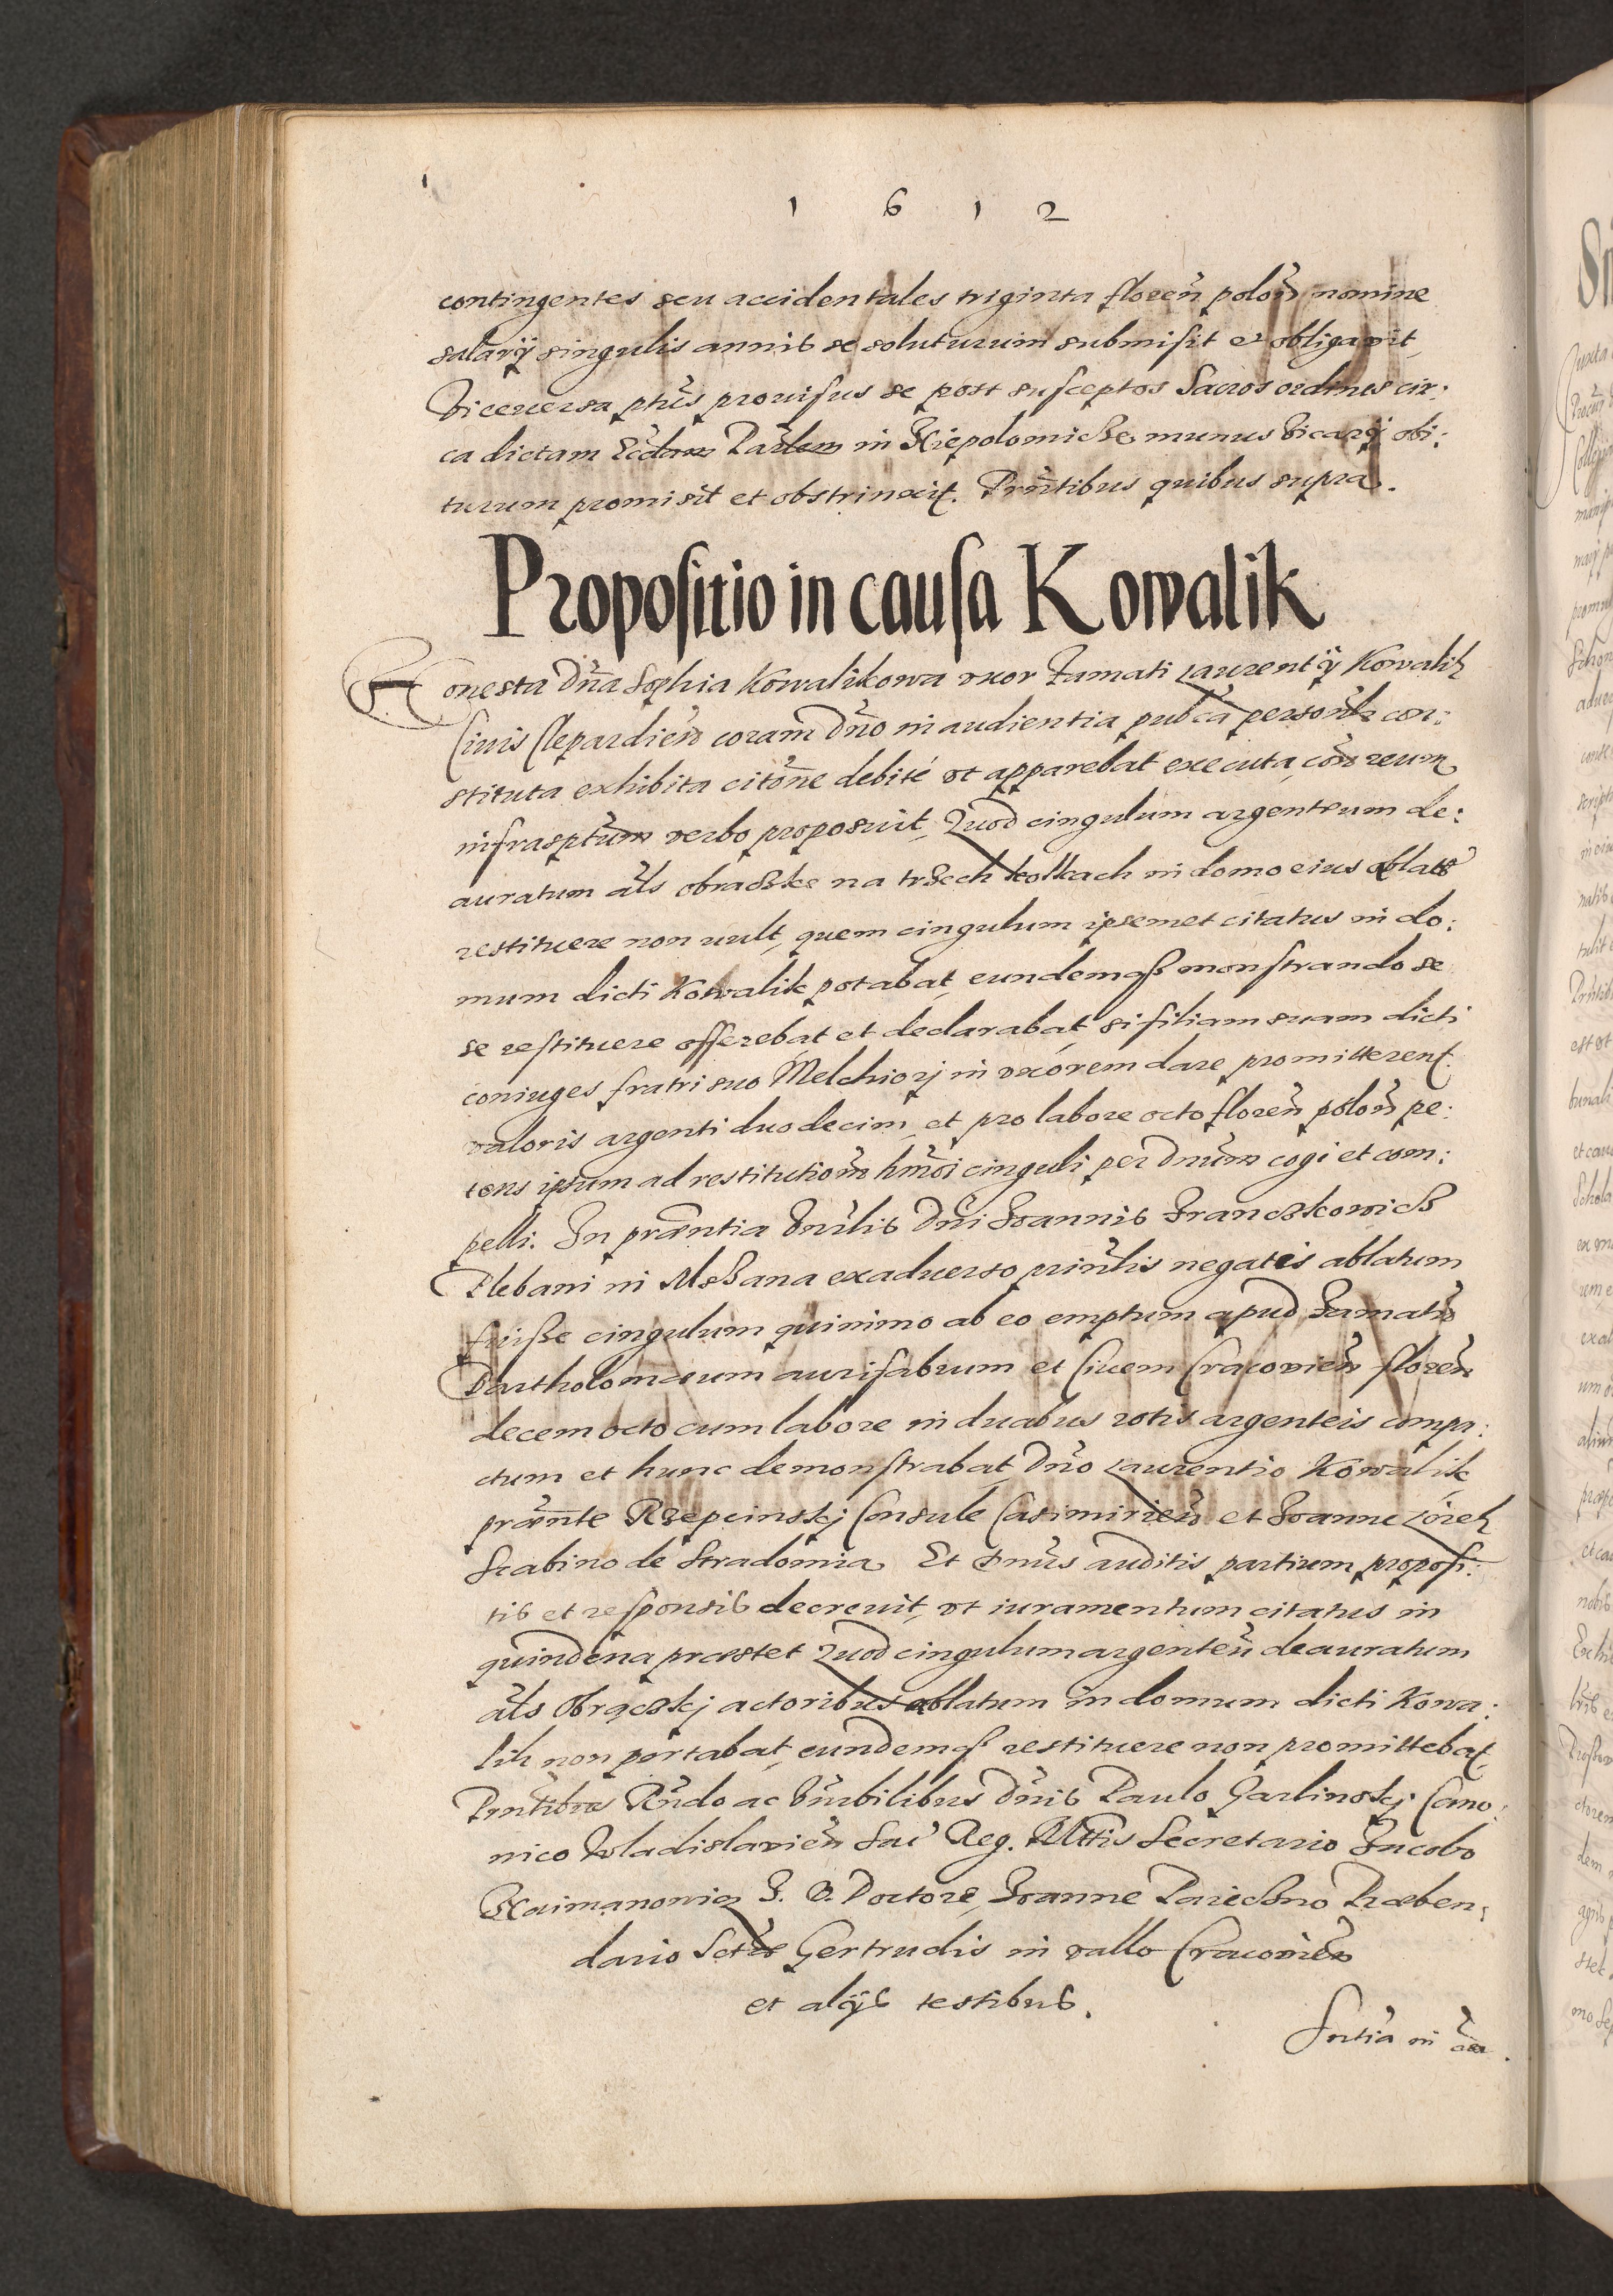 1 6 1 2
contingentes seu accidentales triginta floreñ poloñ nomine
salarÿ singulis annis se soluturum submisit et obligavit,
Viceversa pñs provisus se post susceptos Sacros ordines cir:
ca dictam Eccłam Parlem in Niepolomicze munus Vicarÿ obi:
turum promisit et obstrinxit. Prñtibus quibus supra.
Propositio in causa Kowalik
Honesta Dña Sophia Kowalikowa uxor Famati Laurentÿ Kowalik
Civis Clepardieñ coram Dño in audientia publca personlr con:
stituta exhibita citõne debité ut apparebat executa, cõn reum
infrasptum verbo proposuit, Quod cingulum argenteum de:
auratum als obraczke na trzech kolkach in domo eius ablatũ
restituere non uult, quem cingulum ipsemet citatus in do:
mum dicti Kowalik potabat, eundemq3 monstrando se
se restituere offerebat et declarabat, si filiam suam dicti
coniuges fratri suo Melchiorj in uxórem dare promitterent.
valoris argenti duodecim, et pro labore octo floreñ poloñ pe:
tens ipsum ad restitutionẽ hmõi cinguli per Dnum cogi et com:
pelli. In præntia Vnłlis Dñi Joannis Franczkowicz
Plebani in Mszana exadverso prinlis negatis ablatum
fuisse cingulum quinimo ab eo emptum apud Famatũ
Bartholomæum aurifabrum et Civem Cracovieñ floreñ
decem octo cum labore in duabus rotis argenteis compa:
ctum et hunc demonstrabat Dño Laurentio Kowalik,
præñte Rzepcinskj Consule Casimirieñ et Joanne Lorek
Scabino de Stradomia. Et Dnus auditis partium proposi:
tis et responsis decrevit, ut iuramentum citatus in
quindena præstet Quod cingulum argenteũ deauratum
als Obraczkj actoribus ablatum in domum dicti Kowa:
lik non portabat, eundemq3 restituere non promittebat,
Prntibus Rñdo ac Vnrbilibus Dñis Paulo Garlinskj Cano:
nico Wladislavieñ Sac Reg. Mttis Secretario Jacobo
Naimanowicz J. V. Doctore, Joanne Pariczno Præben:
dario Sctæ Gertrudis in vallo Cracovieñ
et alÿs testibus.
Sntia in cã